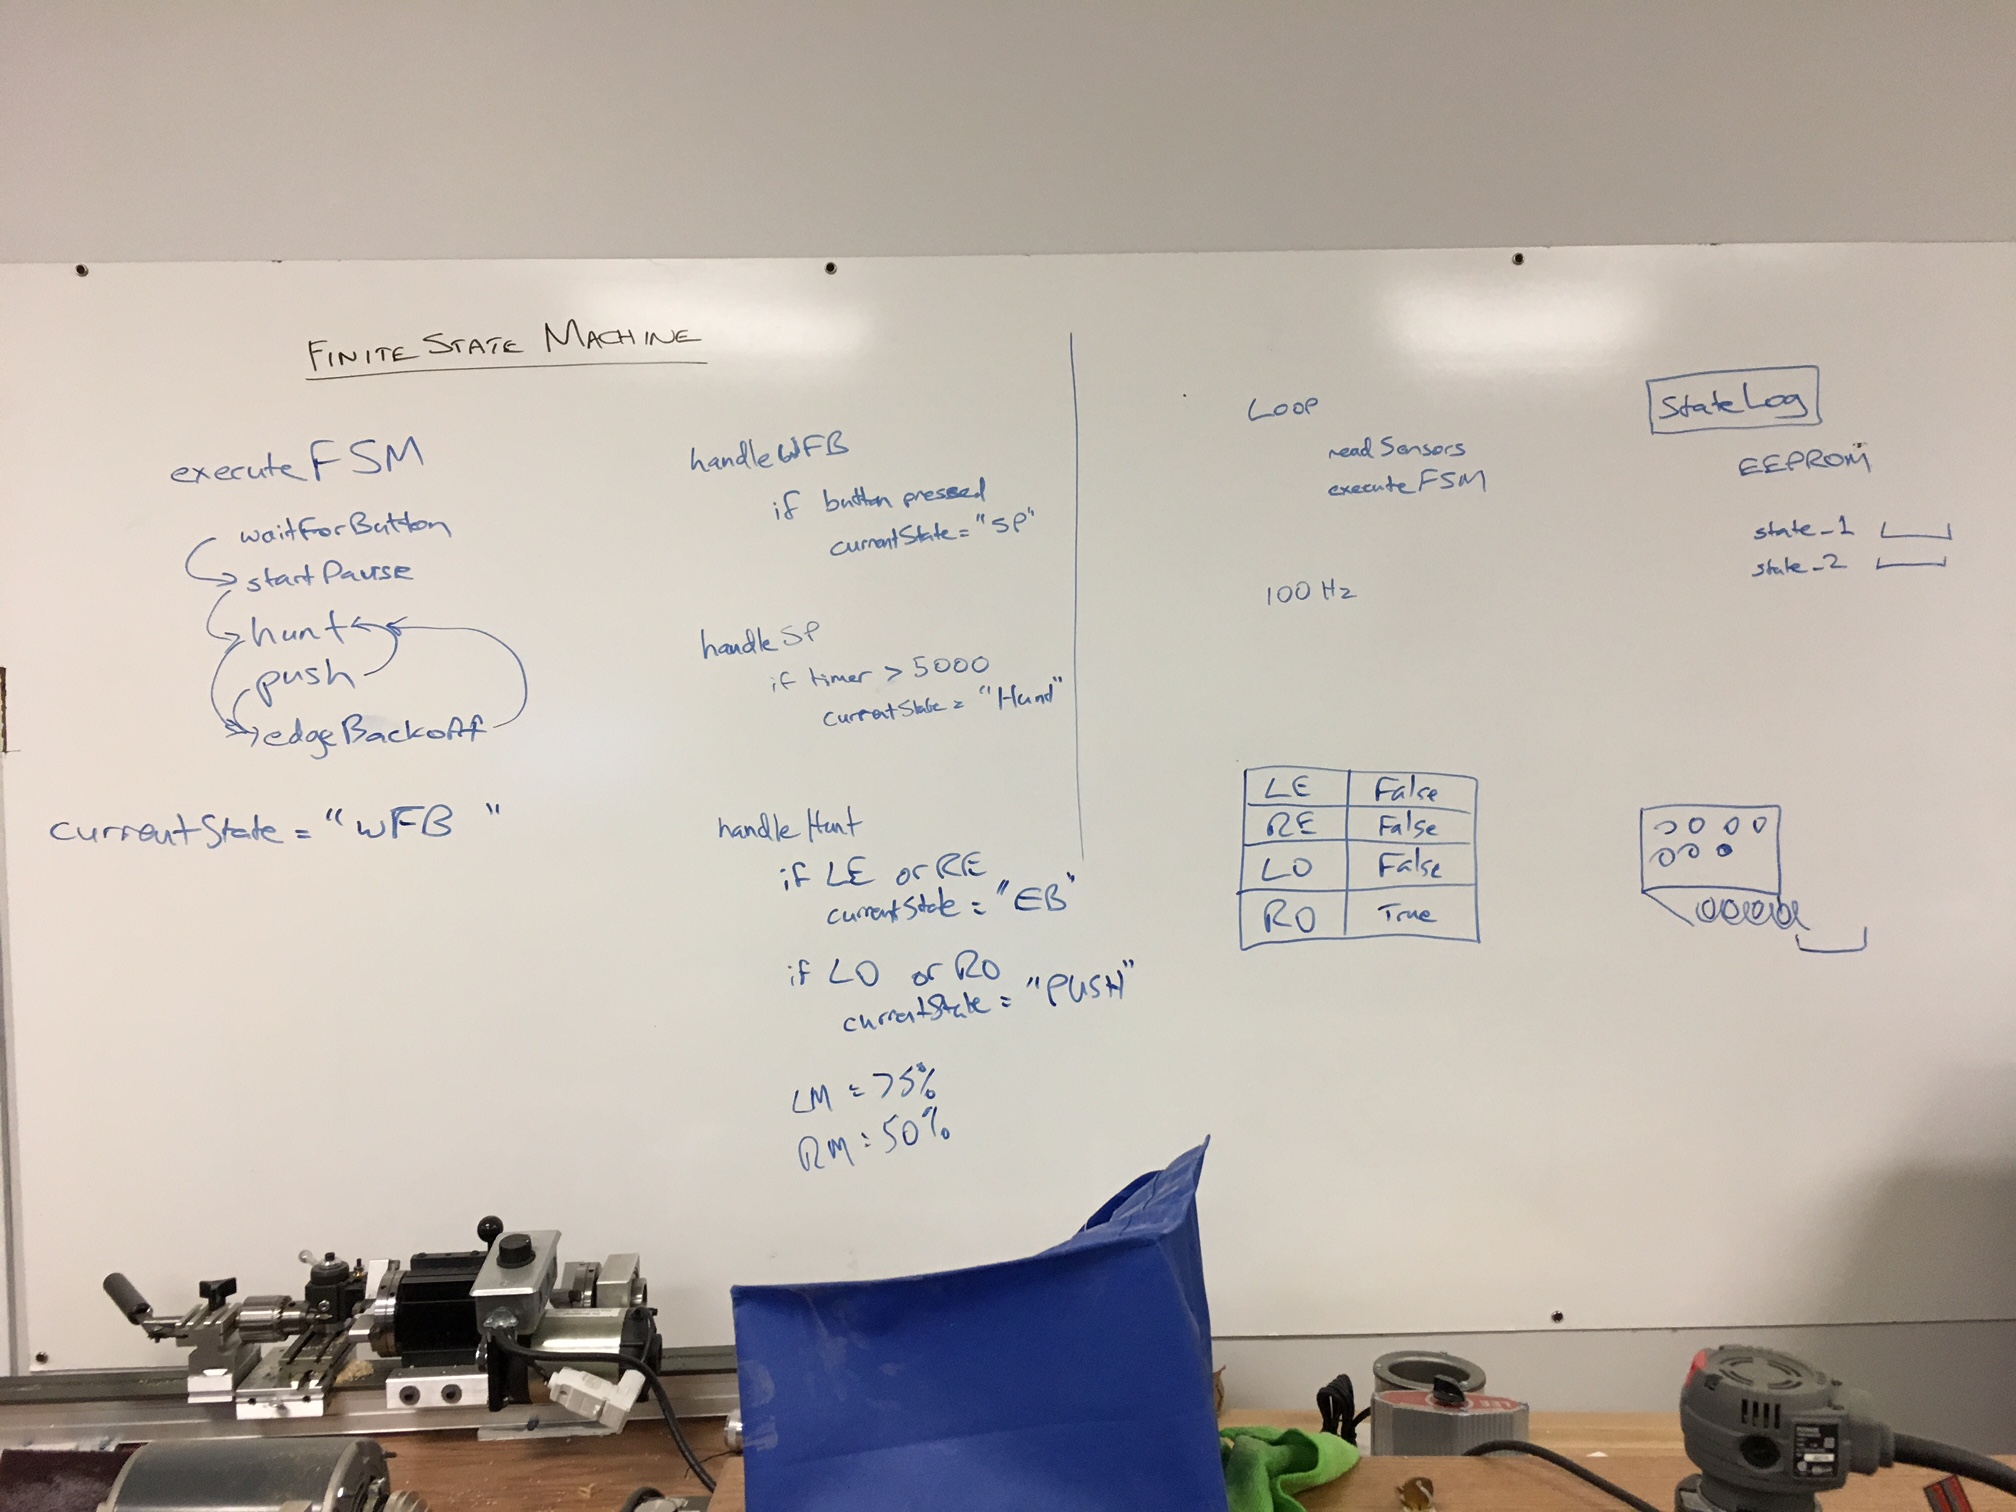 FINITE STATE MACHINE
executeFSM
waitForButton
startPause
hunt
push
edgeBackoff
currentState = "WFB "
handleWFB
if button pressed
currentState = "SP"
handleSP
if timer > 5000
currentState = "Hund"
handleHunt
if LE or RE
currentState = "EB"
if LO or RO
currentState = "PUSH"
LM = 75%
RM = 50%
LOOP
readSensors
executeFSM
100 Hz
LE False
RE False
LO False
RO True
StateLog
EEPROM
state_1
state_2